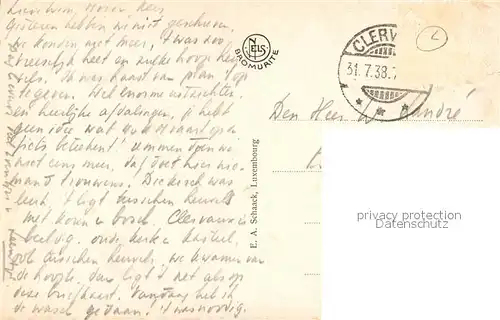 Gisteren hebben wij niet geschreven,
we konden niet meer, 't was zoo
vreeselijk heet en zulke hooge
heuvels. Ik was haast van plan 't op
te geven. Wel enorme uitzichten
en heerlijke afdalingen, je hebt
geen idee wat een vaart op 'n
fiets beteekent! Zwemmen doen we
niet eens meer, dat doet hier nie-
mand trouwens. Diekirch was
leuk, 't ligt tusschen heuvels
met koren en bosch. Clervaux is
oude kerk en kasteel,
ook tusschen heuvels, we kwamen van
de hoogte, dan ligt 't net als op
deze briefkaart. Vandaag heb ik
de wasch gedaan! 't was noodig.
NELS
BROMURITE
E. A. Schaack, Luxembourg
CLERV
31.7.38.
Den Heer W.
privacy protection
Datenschutz